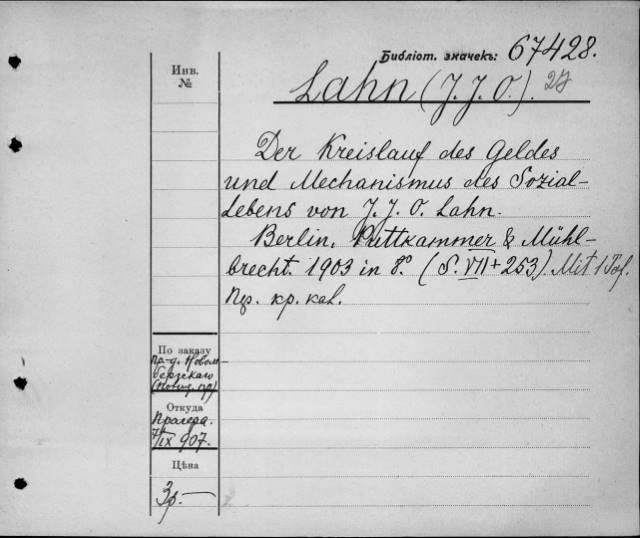 Библіот. значекъ: 67428.
Инв.
№
Lahn (J. J. O.).
Der Kreislauf des Geldes
und Mechanismus des Sozial-
Lebens von J. J. O. Lahn.
Berlin, Puttkammer & Mühl-
brecht. 1903 in 8.° (S. VII + 253). Mit 1 Taf.
кр. кал.
По заказу
Пр-д.
Откуда
Прагера.
IX 907.
Цѣна
3р.—